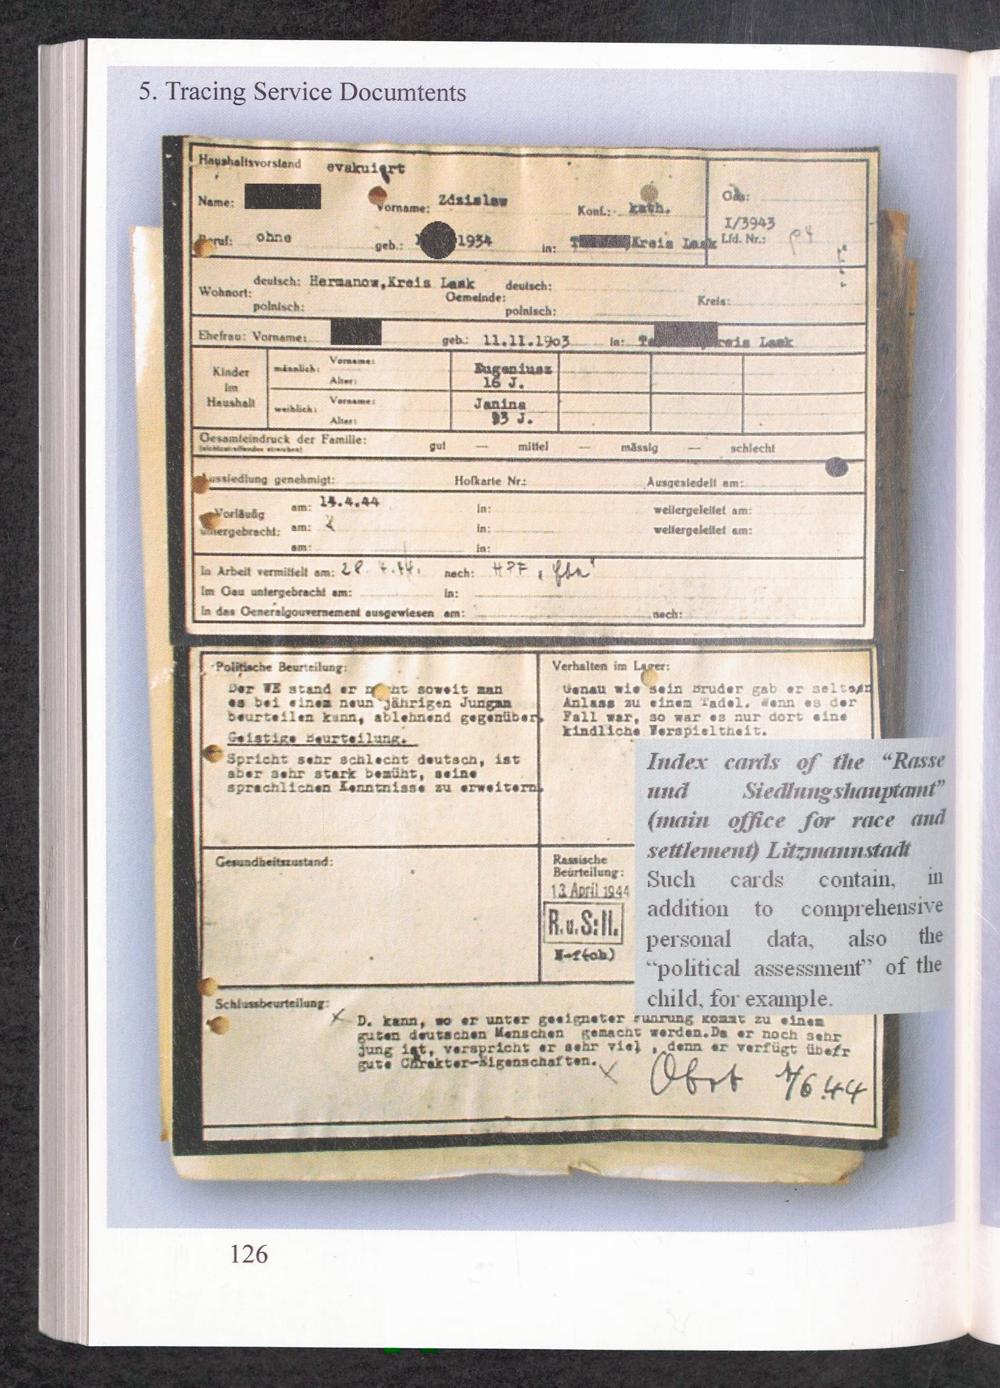 5. Tracing Service Documtents
Haushaltsvorstand evakuiert
Name: Vorname: Zdzislaw Konf.: kath. Gäs:
I/3943
Beruf: ohne geb.: 1934 in: Kreis Lask Lfd. Nr.:
Wohnort: deutsch: Hermanow,Kreis Lask Gemeinde: deutsch: Kreis:
polnisch: polnisch:
Ehefrau: Vorname: geb.: 11.11.1903 in: Kreis Lask
Kinder im Haushalt
männlich: Vorname: Eugeniusz
Alter: 16 J.
weiblich: Vorname: Janina
Alter: J.
Gesamteindruck der Familie: gut — mittel — mässig — schlecht
(nichtzutreffendes streichen)
Aussiedlung genehmigt: Hofkarte Nr.: Ausgesiedelt am:
Vorläufig untergebracht: am: 14.4.44 in: weitergeleitet am:
am: in: weitergeleitet am:
am: in:
In Arbeit vermittelt am: nach:
Im Gau untergebracht am: in:
In das Generalgouvernement ausgewiesen am: nach:
Politische Beurteilung:
Der WE stand er nicht soweit man
es bei einem neun jährigen Jungen
beurteilen kann, ablehnend gegenüber.
Geistige Beurteilung.
Spricht sehr schlecht deutsch, ist
aber sehr stark bemüht, seine
sprachlichen Kenntnisse zu erweitern.
Verhalten im Lager:
Genau wie sein Bruder gab er selten
Anlass zu einem Tadel. Wenn es der
Fall war, so war es nur dort eine
kindliche Verspieltheit.
Index cards of the “Rasse
und Siedlungshauptamt”
(main office for race and
settlement) Litzmannstadt
Such cards contain, in
addition to comprehensive
personal data, also the
“political assessment” of the
child, for example.
Gesundheitszustand:
Rassische
Beurteilung:
13. April 1944
R.u.S:II.
Schlussbeurteilung:
D. kann, wo er unter geeigneter Führung kommt zu einem
guten deutschen Menschen gemacht werden.Da er noch sehr
jung ist, verspricht er sehr viel , denn er verfügt überr
gute Chrakter-Eigenschaften.
6.44
126